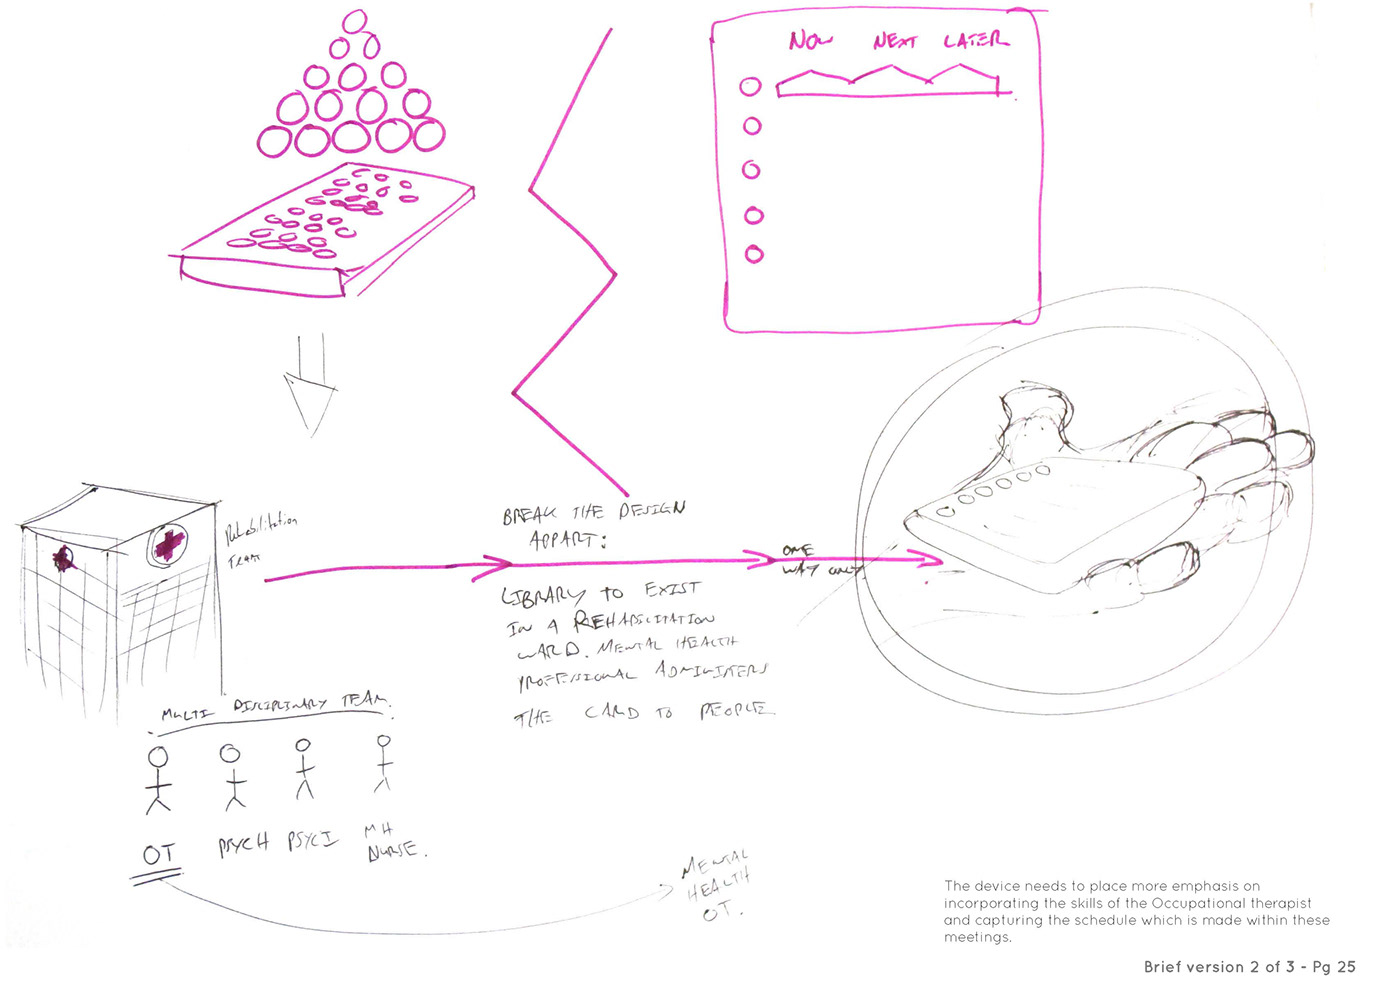 NOW NEXT LATER
Rehabilitation
Team
BREAK THE DESIGN
APPART:
ONE
WAY ONLY.
LIBRARY TO EXIST
IN A REHABILITATION
WARD. MENTAL HEALTH
PROFESSIONAL ADMINISTERS
THE CARD TO PEOPLE
MULTI DISCIPLINARY TEAM.
OT PSYCH PSYCI MH
NURSE.
MENTAL
HEALTH
OT.
The device needs to place more emphasis on
incorporating the skills of the Occupational therapist
and capturing the schedule which is made within these
meetings.
Brief version 2 of 3 - Pg 25